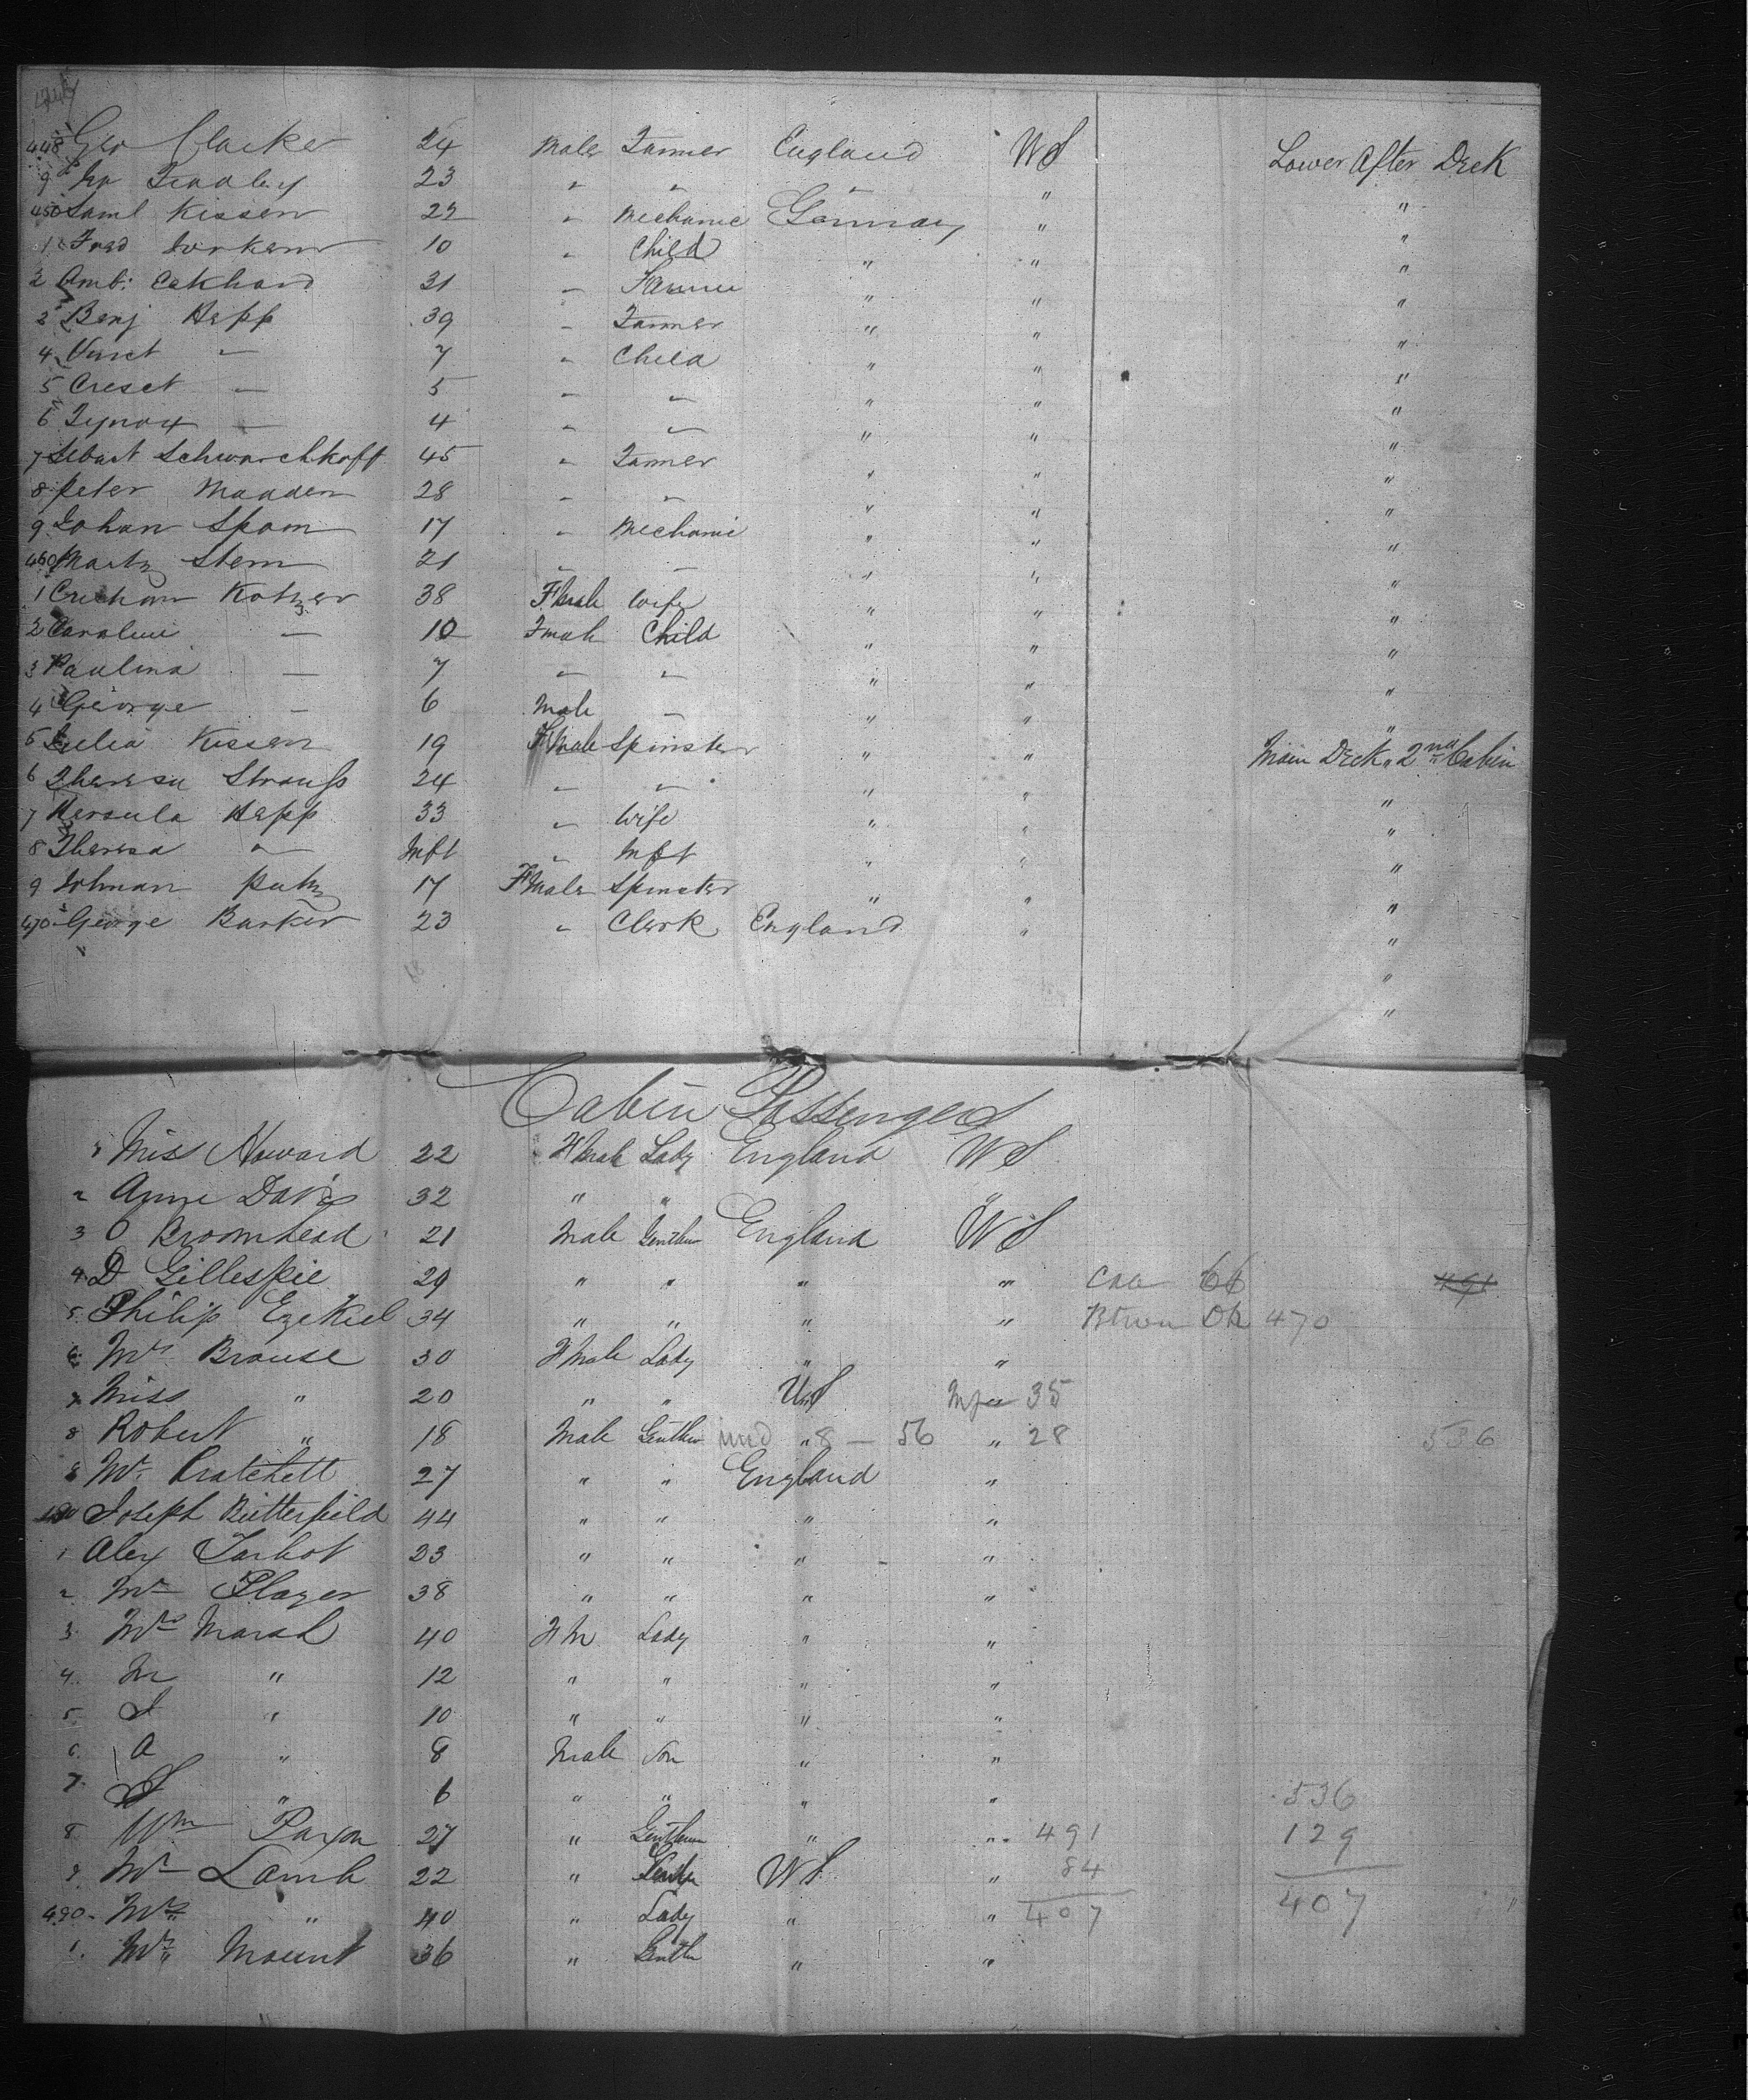 448 Geo Clarker 24 Male Farmer England US Lower After Deck
9 23 " " " " "
450 Saml Kissen 22 " Mechanic Germany " "
1 Fred 10 " Child " " "
2 Amb: Eckhard 31 " Farmer " " "
3 Benj Hepp 39 " Farmer " " "
4 — 7 " Child " " "
5 Creset — 5 " " " " "
6 — 4 " " " " "
7 Schwarchkoff 45 " Farmer " " "
8 Peter Maaden 28 " " " " "
9 Johan Spam 17 " Mechanic " " "
460 Martz Stern 21 " " " " "
1 Kotzer 38 Fmale Wife " " "
2 Caroline — 10 Fmale Child " " "
3 Paulina — 7 " " " " "
4 George — 6 Male — " " "
5 Julia Kissen 19 Fmale Spinster " " Main Deck " 2nd Cabin
6 Theresa Strauss 24 " " " " "
7 Hersula Hepp 33 " Wife " " "
8 Theresa " Inft " Inft " " "
9 Johnan Putz 17 FMale Spinster " " "
470 George Barker 23 " Clerk England " "
Cabin Passengers
1 Miss Howard 22 Fmale Lady England US
2 Anne Davis 32 " " "
3 O Broomhead 21 Male Gentlem England US
4 D Gillespie 29 " " " "
5 Philip Ezekiel 34 " " " " Btwn Dk 470
6 Mrs Brouse 30 Fmale Lady " "
7 Miss " 20 " " US 35
8 Robert " 18 Male Gentlem und 8 — 56 " 28 536
9 Mr Pratchett 27 " " England "
480 Joseph Butterfield 44 " " " "
1 Alex Tarbot 23 " " " "
2 Mr Slazer 38 " " " "
3 Mrs Marsh 40 Fm Lady " "
4 M " 12 " " " "
5 J " 10 " " " "
6 A " 8 Male Son " "
7 " 6 " " " " 536
8 Wm Paxon 27 " Gentlem " " 491 129
9 Mr Lamb 22 " Gentlem US " 84
490 Mrs " 40 " Lady " " 407 407
1 Mr Mount 36 " Gentlm " "